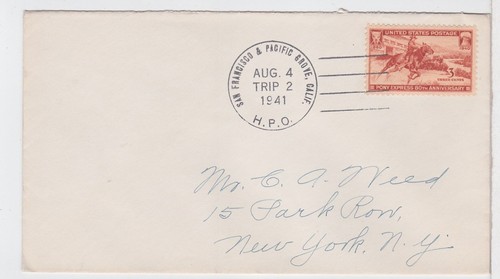 SAN FRANCISCO & PACIFIC GROVE, CALIF.
AUG. 4
TRIP 2
1941
H.P.O.
UNITED STATES POSTAGE
3
PONY EXPRESS 80TH ANNIVERSARY
Mr. C. A. Weed
15 Park Row,
New York. N.Y.